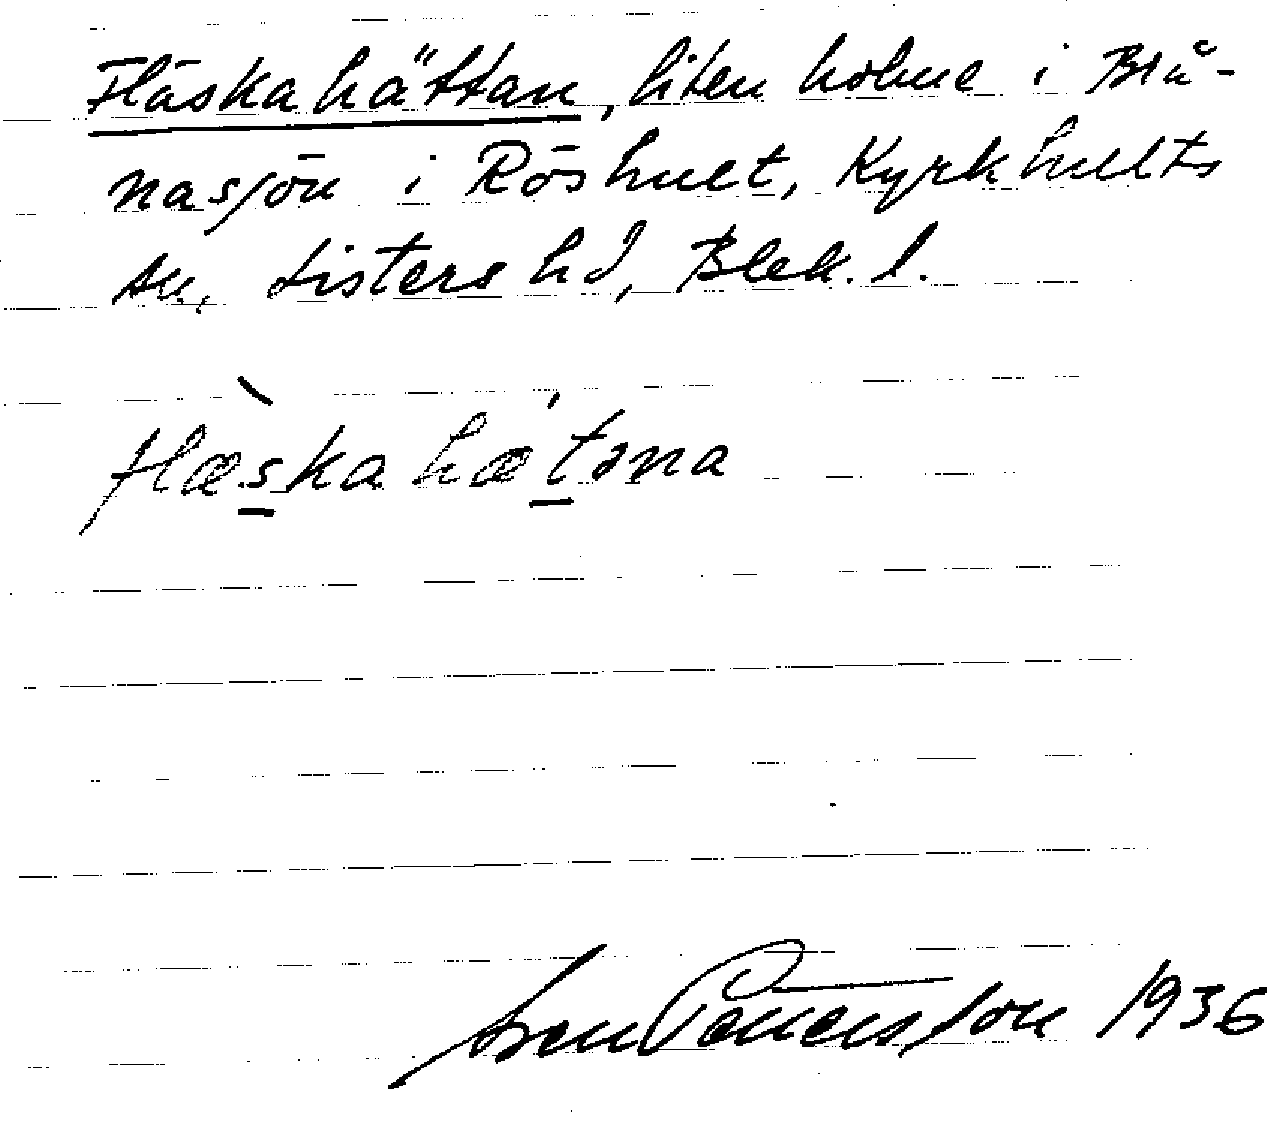 Fläskahättan, liten holme i Blå-
nasjön i Röshult, Kyrkhults
sn, Listers hd, Blek. l.
flæskahætəna
Sven Pettersson 1936